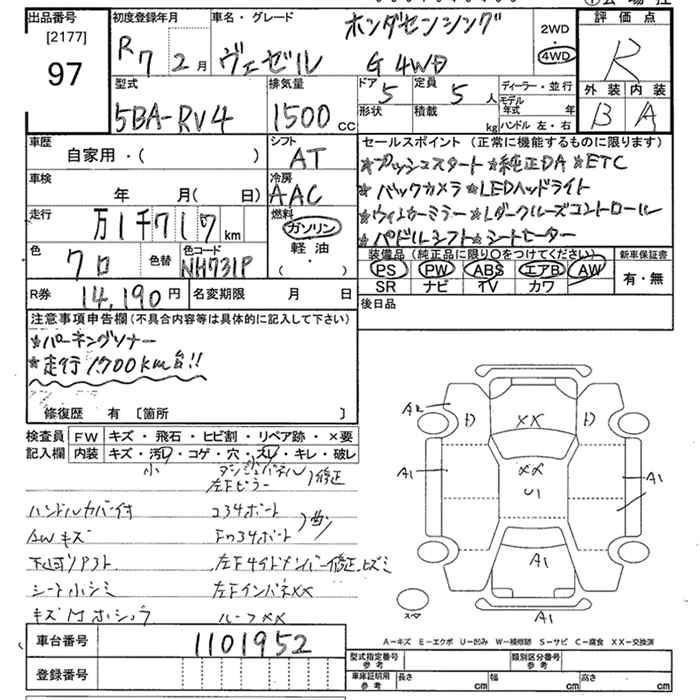 出品番号
[2177]
97
初度登録年月
R7 2月
車名・グレード
ホンダセンシング
ヴェゼル G 4WD
2WD
・
4WD
評価点
R
型式
5BA-RV4
排気量
1500 cc
ドア 5
形状
定員 5 人
積載 kg
ディーラー・並行
モデル年式 年
ハンドル 左・右
外装 内装
B A
車歴
自家用・( )
シフト
AT
車検
年 月( 日)
冷房
AAC
走行
万1千717km
燃料
ガソリン
軽油
( ・ )
色
クロ
色替
色コード
NH731P
R券 14,190円
名変期限 月 日
セールスポイント (正常に機能するものに限ります)
★プッシュスタート ★純正DA ★ETC
★バックカメラ ★LEDヘッドライト
★ウィンカーミラー ★レダークルーズコントロール
★パドルシフト ★シートヒーター
装備品 (純正品に限り〇をつけてください)
新車保証書
PS PW ABS エアB AW
SR ナビ TV カワ
有・無
後日品
注意事項申告欄 (不具合内容等は具体的に記入して下さい)
★パーキングソナー
★走行1700km台!!
修復歴 有 〔箇所 〕
検査員
記入欄
FW キズ・飛石・ヒビ割・リペア跡・×要
内装 キズ・汚レ・コゲ・穴・スレ・キレ・破レ
小
左Fピラー 修正
ハンドルカバー付 コ34ボート
AWキズ Fの34ボート 曲
下廻リサフト 左Fサイドメンバー修正、ヒズミ
シート小シミ 左Fインパネ××
ルーフ××
A2
D
××
D
A1
××
U1
A1
A1
A1
スペア
A-キズ E-エクボ U-凹み W-補修跡 S-サビ C-腐食 XX-交換済
車台番号 1101952
登録番号
型式指定番号
参考
類別区分番号
参考
車庫証明用
参考
長さ cm
幅 cm
高さ cm